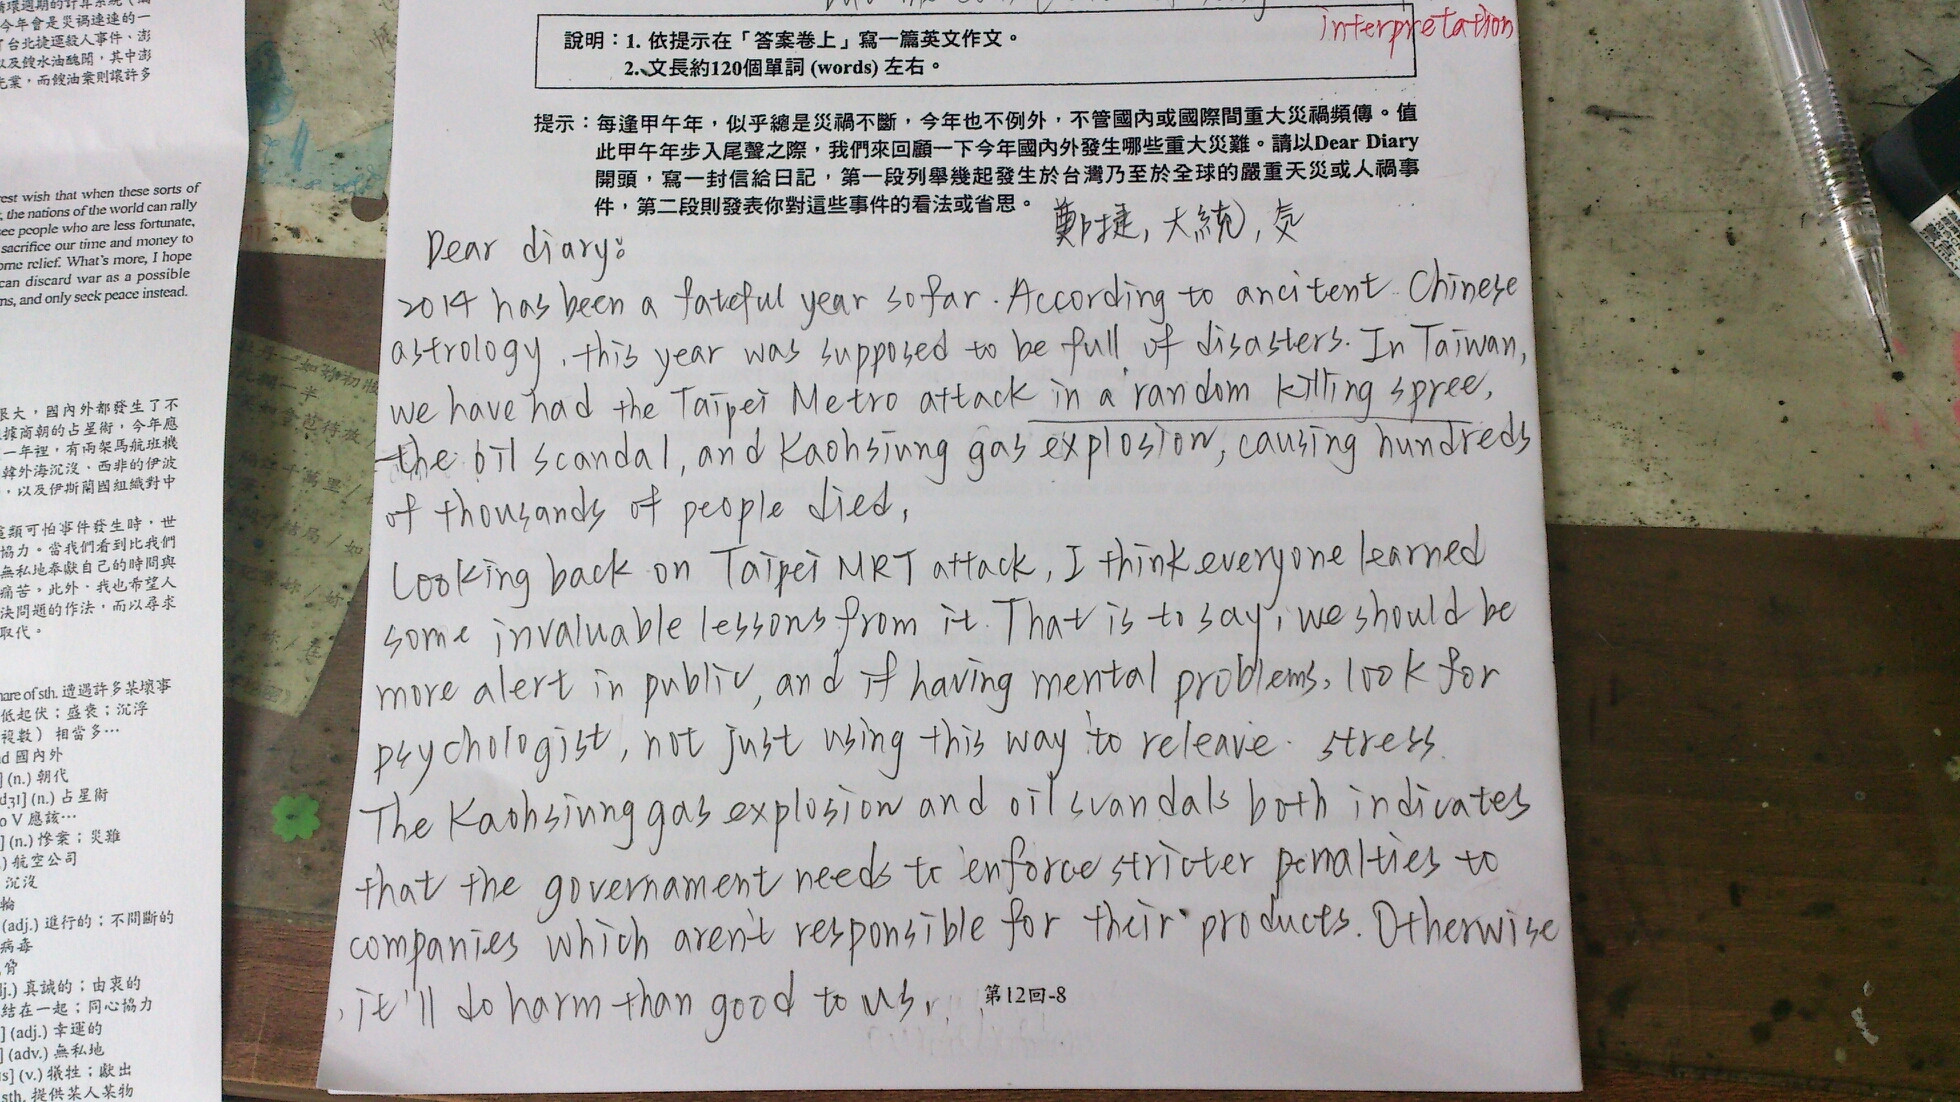 循環週期的計算系統
今年會是災禍連連的一
了台北捷運殺人事件、澎
以及餿水油醜聞，其中澎
，而餿油案則讓許多
rest wish that when these sorts of
, the nations of the world can rally
see people who are less fortunate,
sacrifice our time and money to
ome relief. What's more, I hope
can discard war as a possible
ns, and only seek peace instead.
很大，國內外都發生了不
據商朝的占星術，今年應
一年裡，有兩架馬航班機
韓外海沉沒、西非的伊波
，以及伊斯蘭國組織對中
這類可怕事件發生時，世
協力。當我們看到比我們
無私地奉獻自己的時間與
痛苦。此外，我也希望人
決問題的作法，而以尋求
取代。
hare of sth. 遭遇許多某壞事
低起伏；盛衰；沉浮
複數） 相當多…
ad 國內外
] (n.) 朝代
dʒɪ] (n.) 占星術
o V 應該…
] (n.) 慘案；災難
.) 航空公司
沉沒
輪
(adj.) 進行的；不間斷的
病毒
脅
dj.) 真誠的；由衷的
結在一起；同心協力
] (adj.) 幸運的
] (adv.) 無私地
ɪs] (v.) 犧牲；獻出
sth. 提供某人某物
interpretation
說明：1. 依提示在「答案卷上」寫一篇英文作文。
2. 文長約120個單詞 (words) 左右。
提示：每逢甲午年，似乎總是災禍不斷，今年也不例外，不管國內或國際間重大災禍頻傳。值
此甲午年步入尾聲之際，我們來回顧一下今年國內外發生哪些重大災難。請以Dear Diary
開頭，寫一封信給日記，第一段列舉幾起發生於台灣乃至於全球的嚴重天災或人禍事
件，第二段則發表你對這些事件的看法或省思。
鄭捷, 大統, 氣
Dear diary:
2014 has been a fateful year so far. According to ancitent Chinese
astrology, this year was supposed to be full of disasters. In Taiwan,
we have had the Taipei Metro attack in a random killing spree,
the oil scandal, and Kaohsiung gas explosion, causing hundreds
of thousands of people died,
Looking back on Taipei MRT attack, I think everyone learned
some invaluable lessons from it. That is to say, we should be
more alert in public, and if having mental problems, look for
psychologist, not just using this way to releave stress.
The Kaohsiung gas explosion and oil scandals both indicates
that the governament needs to enforce stricter penalties to
companies which aren't responsible for their products. Otherwise
, it'll do harm than good to us.
第12回-8